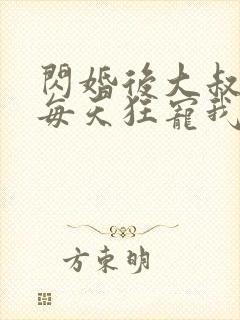 閃婚後大叔
每天狂寵我
方東明